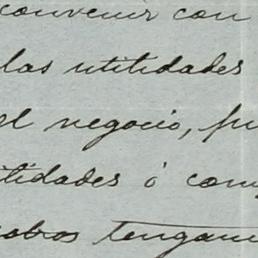 convenir con
las utilidades
el negocio, pu
tilidades ó com
tengam